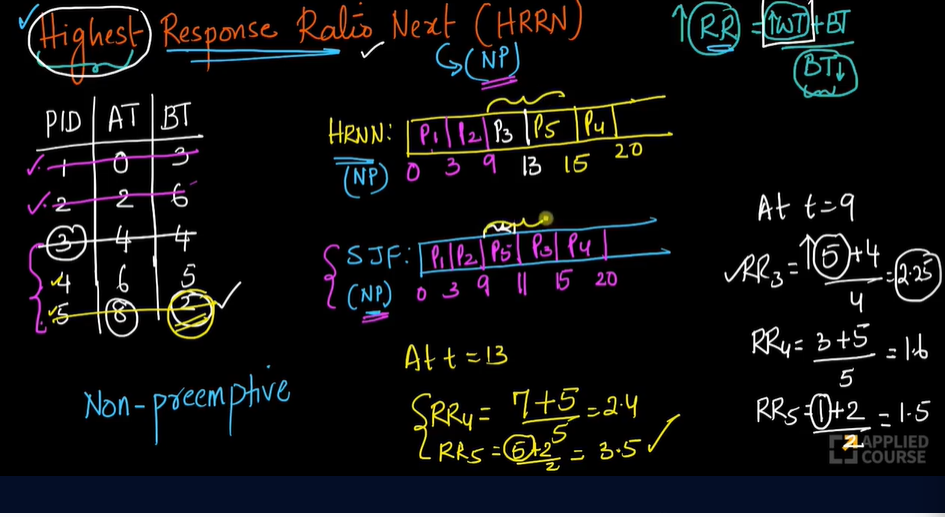 Highest Response Ratio Next (HRRN)
(NP)
↑(RR) = ↑WT+BT
BT↓
PID AT BT
1 0 3
2 2 6
3 4 4
4 6 5
5 8 2
HRNN: P1 P2 P3 P5 P4
(NP) 0 3 9 13 15 20
SJF: P1 P2 P5 P3 P4
(NP) 0 3 9 11 15 20
Non-preemptive
At t=13
RR4 = 7+5/5 = 2.4
RR5 = 5+2/2 = 3.5
At t=9
RR3 = ↑5+4/4 = 2.25
RR4 = 3+5/5 = 1.6
RR5 = 1+2/2 = 1.5
APPLIED
COURSE